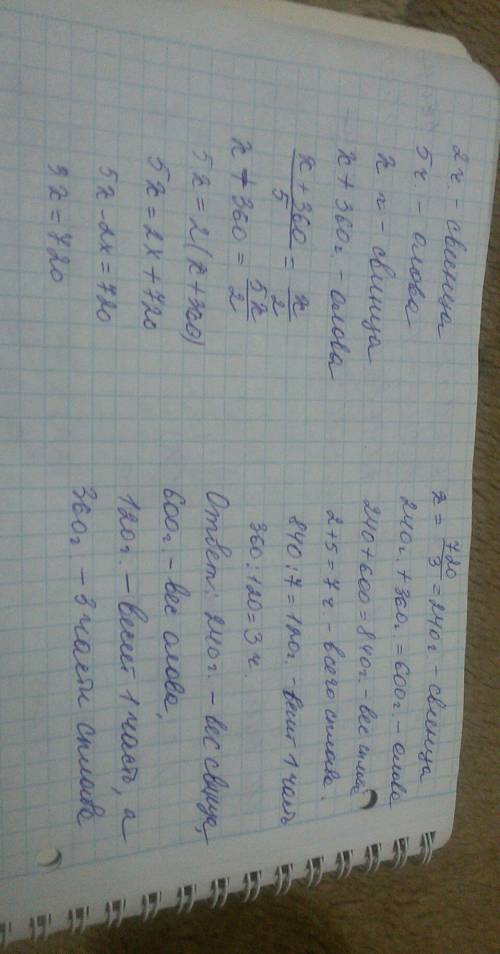 2 ч. - свинца
5 ч. - олова
x г - свинца
x + 360 г - олова
(x + 360)/5 = x/2
x + 360 = 5x/2
5x = 2(x + 360)
5x = 2x + 720
5x - 2x = 720
3x = 720
x = 720/3 = 240 г. - свинца
240 г. + 360 г. = 600 г. - олова
240 + 600 = 840 г - вес сплава
2 + 5 = 7 ч - всего сплава.
840 : 7 = 120 г - весит 1 часть
360 : 120 = 3 ч.
Ответ: 240 г. - вес свинца,
600 г. - вес олова,
120 г. - весит 1 часть, а
360 г. - 3 части сплава